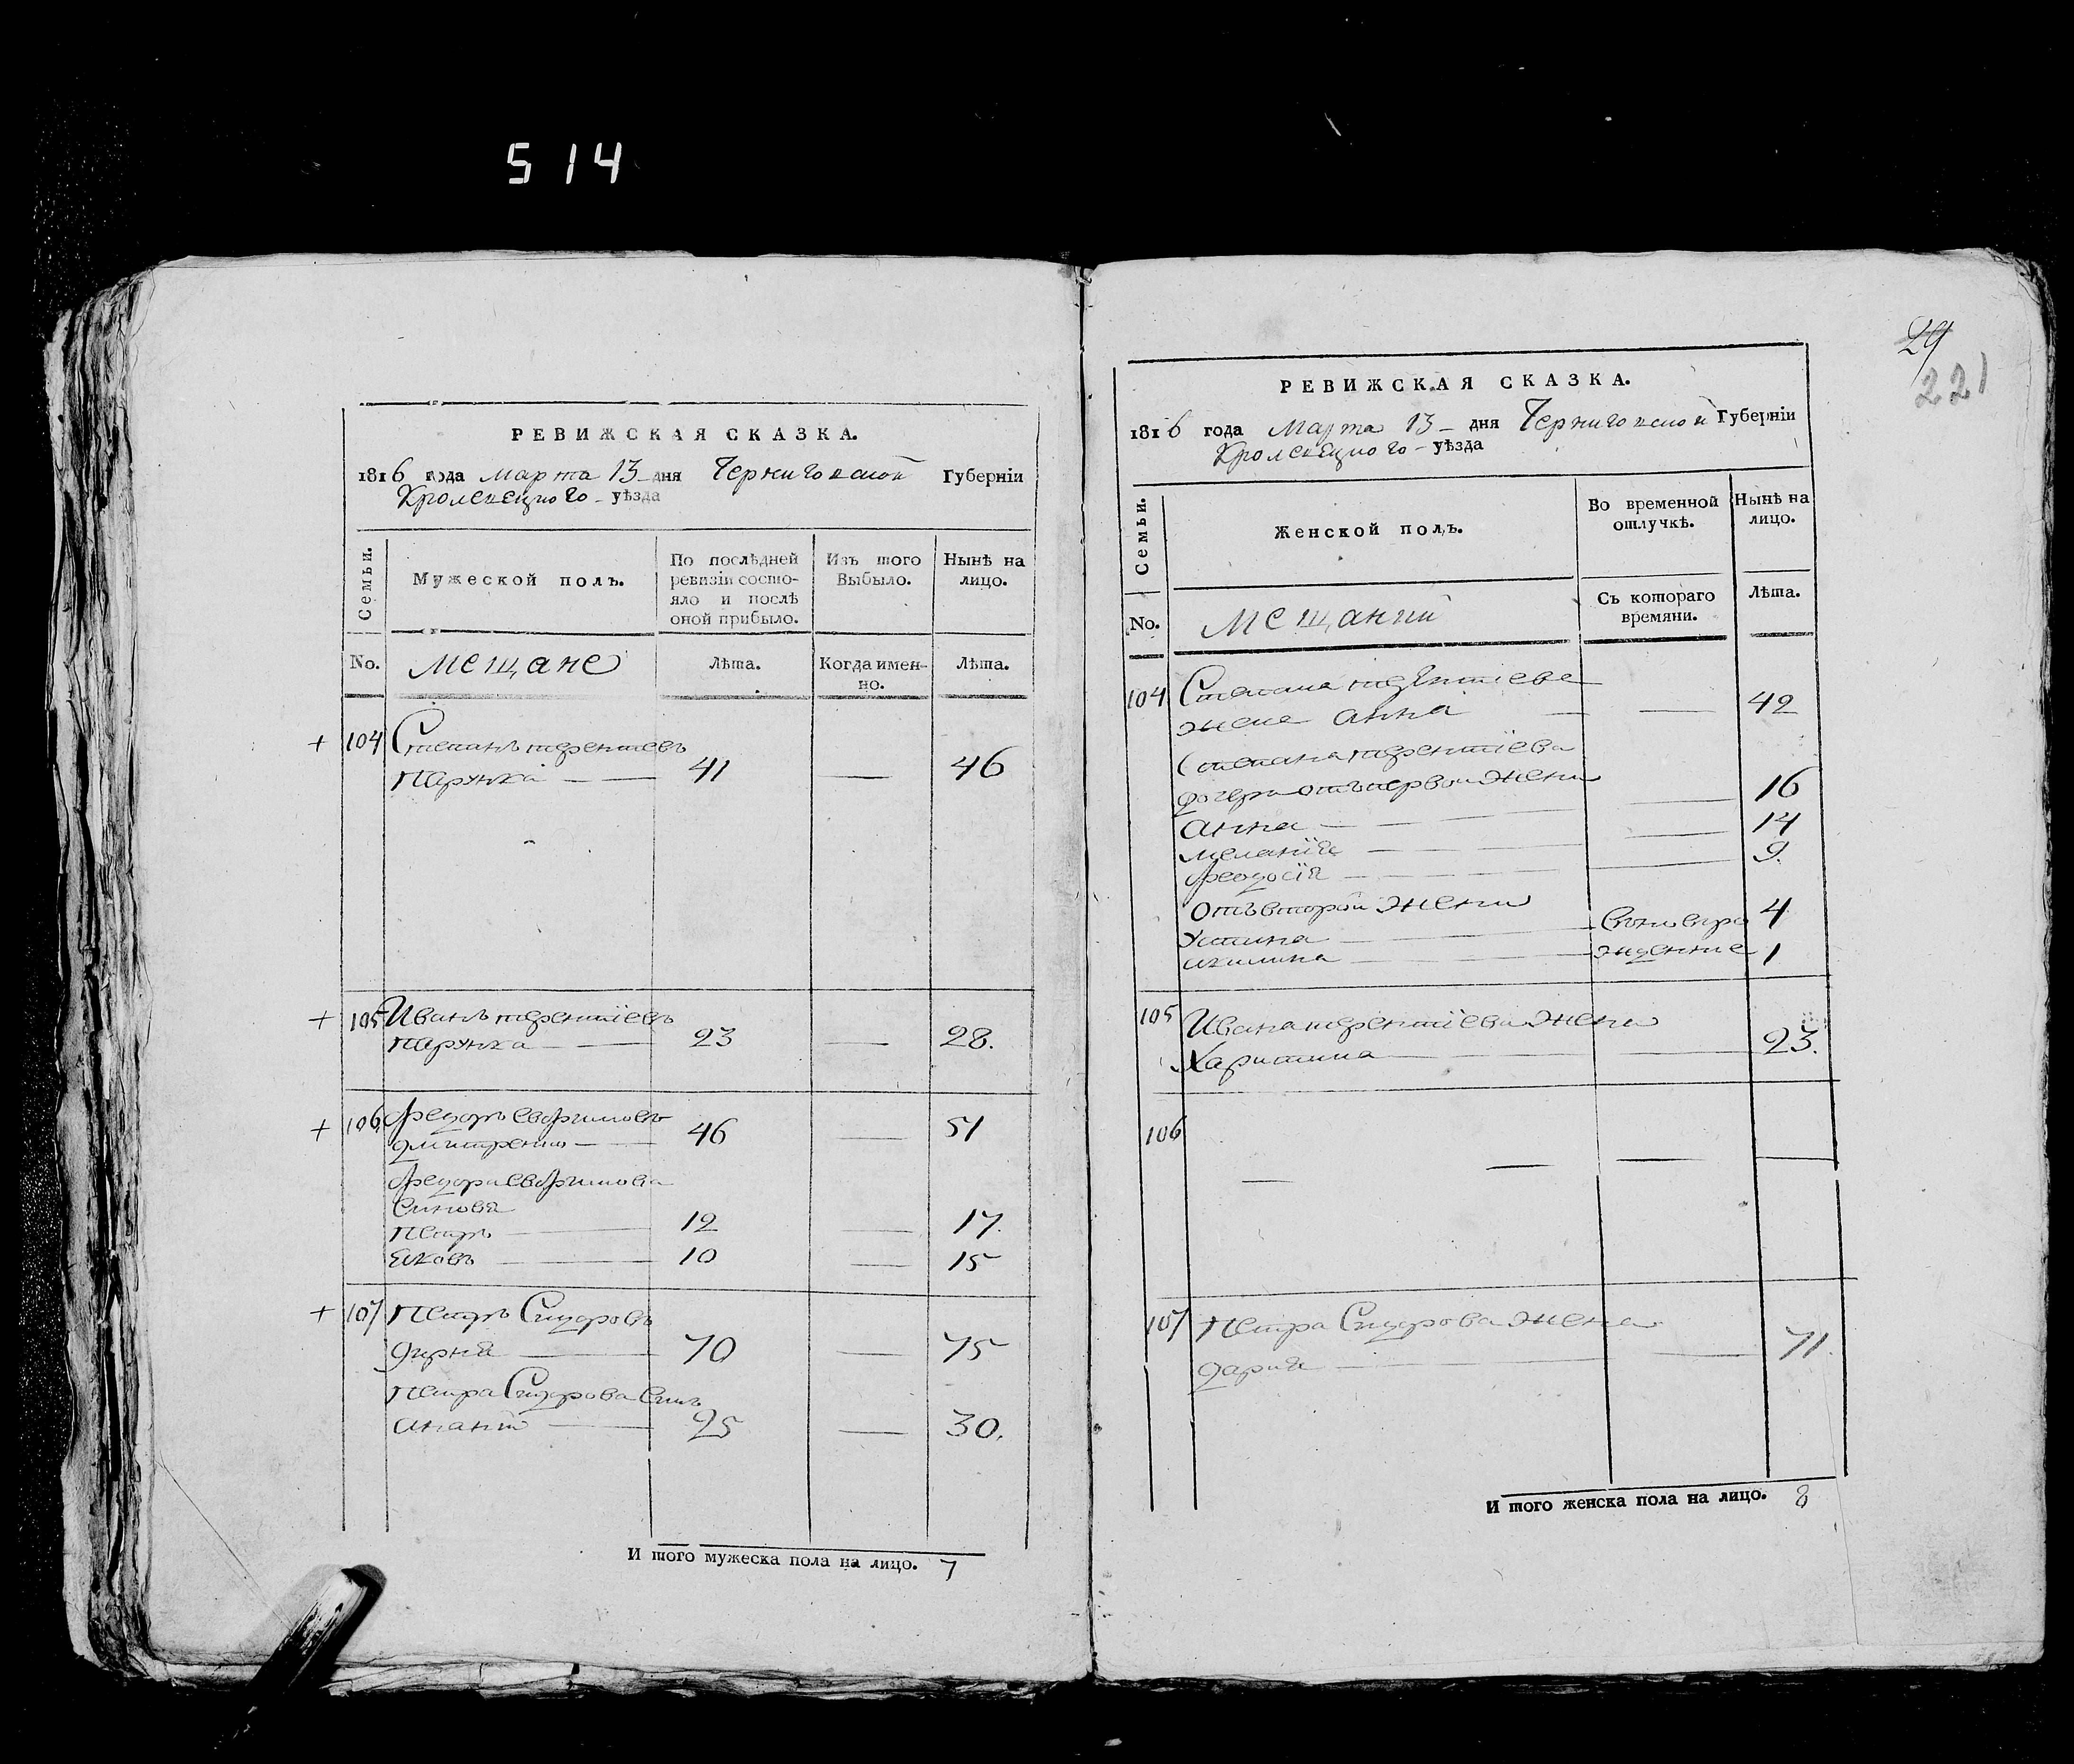 514
РЕВИЖСКАЯ СКАЗКА.
1816 года Марта 13 дня Черниговской Губерніи
Кролевецкого уѣзда
Семьи.
Мужеской полъ.
По послѣдней ревизіи состояло и послѣ оной прибыло.
Изъ того Выбыло.
Нынѣ на лицо.
No.
Мещане
Лѣта.
Когда именно.
Лѣта.
+ 104 Степанъ терентіевъ
41 — 46
+ 105 Иванъ терентіевъ
23 — 28.
+ 106 Федоръ
Дмитренко — 46 — 51
Федора
Синовя
Петръ — 12 — 17.
Яковъ — 10 — 15
+ 107 Петръ Сидоровъ
70 — 75
Петра Сидорова Синъ
Ананій — 25 — 30.
И того мужеска пола на лицо. 7
29
221
РЕВИЖСКАЯ СКАЗКА.
1816 года Марта 13 дня Черниговской Губерніи
Кролевецкого уѣзда
Семьи.
Женской полъ.
Во временной отлучкѣ.
Нынѣ на лицо.
No.
Мещанки
Съ котораго времяни.
Лѣта.
104 Степана терентіева
жена Анна — 42
Степана терентіева
дочери отъ первой жени
Анна — 16
Меланія — 14
Феодосія — 9.
Отъ второй жени
Устина — 4
Акилина — 1
105 Ивана терентіева жена
Харитина — 23.
106 — — —
107 Петра Сидорова жена
Дарія — 71.
И того женска пола на лицо. 8